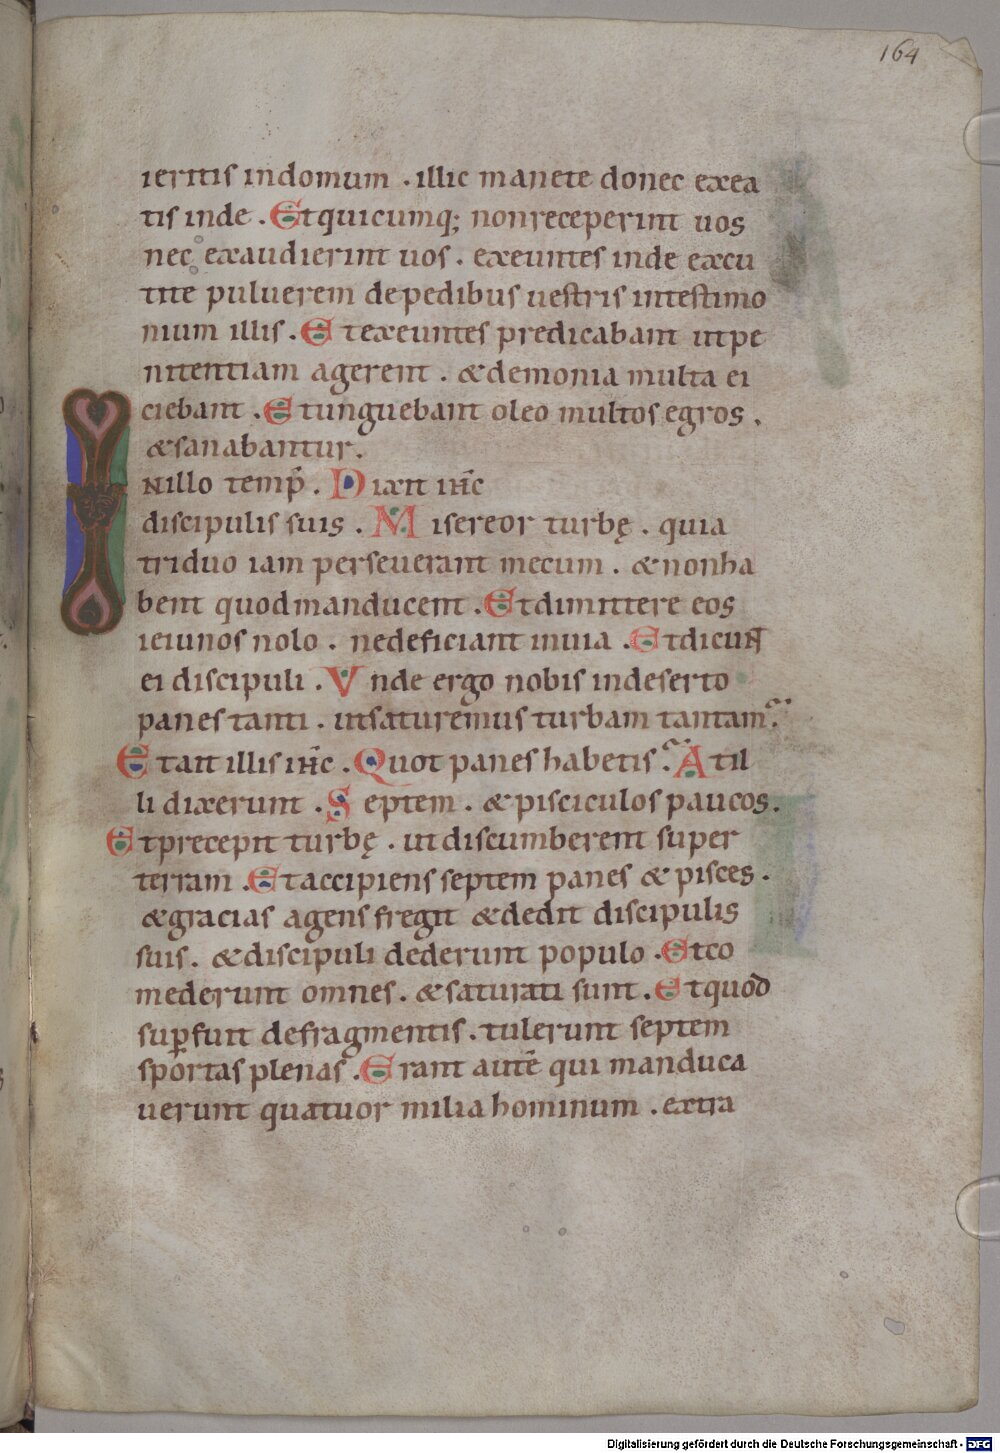 164
ieritis indomum . illic manete donec exea
tis inde . Etquicumq; nonreceperint uos
nec exaudierint uos . exeuntes inde excu
tite puluerem depedibus uestris intestimo
nium illis . Etexeuntes predicabant utpe
nitentiam agerent . &demonia multa ei
ciebant . Etunguebant oleo multos egros .
&sanabantur .
INillo temp̄ . Dixit ih̄c
discipulis suis . Misereor turbę . quia
triduo iam perseuerant mecum . &nonha
bent quodmanducent . Etdimittere eos
ieiunos nolo . nedeficiant inuia . Etdicunt
ei discipuli . Vnde ergo nobis indeserto
panes tanti . utsaturemus turbam tantam?
Etait illis ih̄c . Quot panes habetis? Atil
li dixerunt . Septem . &pisciculos paucos .
Etprecepit turbę . ut discumberent super
terram . Etaccipiens septem panes & pisces .
&gracias agens fregit &dedit discipulis
suis . &discipuli dederunt populo . Etco
mederunt omnes . &saturati sunt . Etquod
suꝑfuit defragmentis . tulerunt septem
sportas plenas . Erant autē qui manduca
uerunt quatuor milia hominum . extra
Digitalisierung gefördert durch die Deutsche Forschungsgemeinschaft - DFG